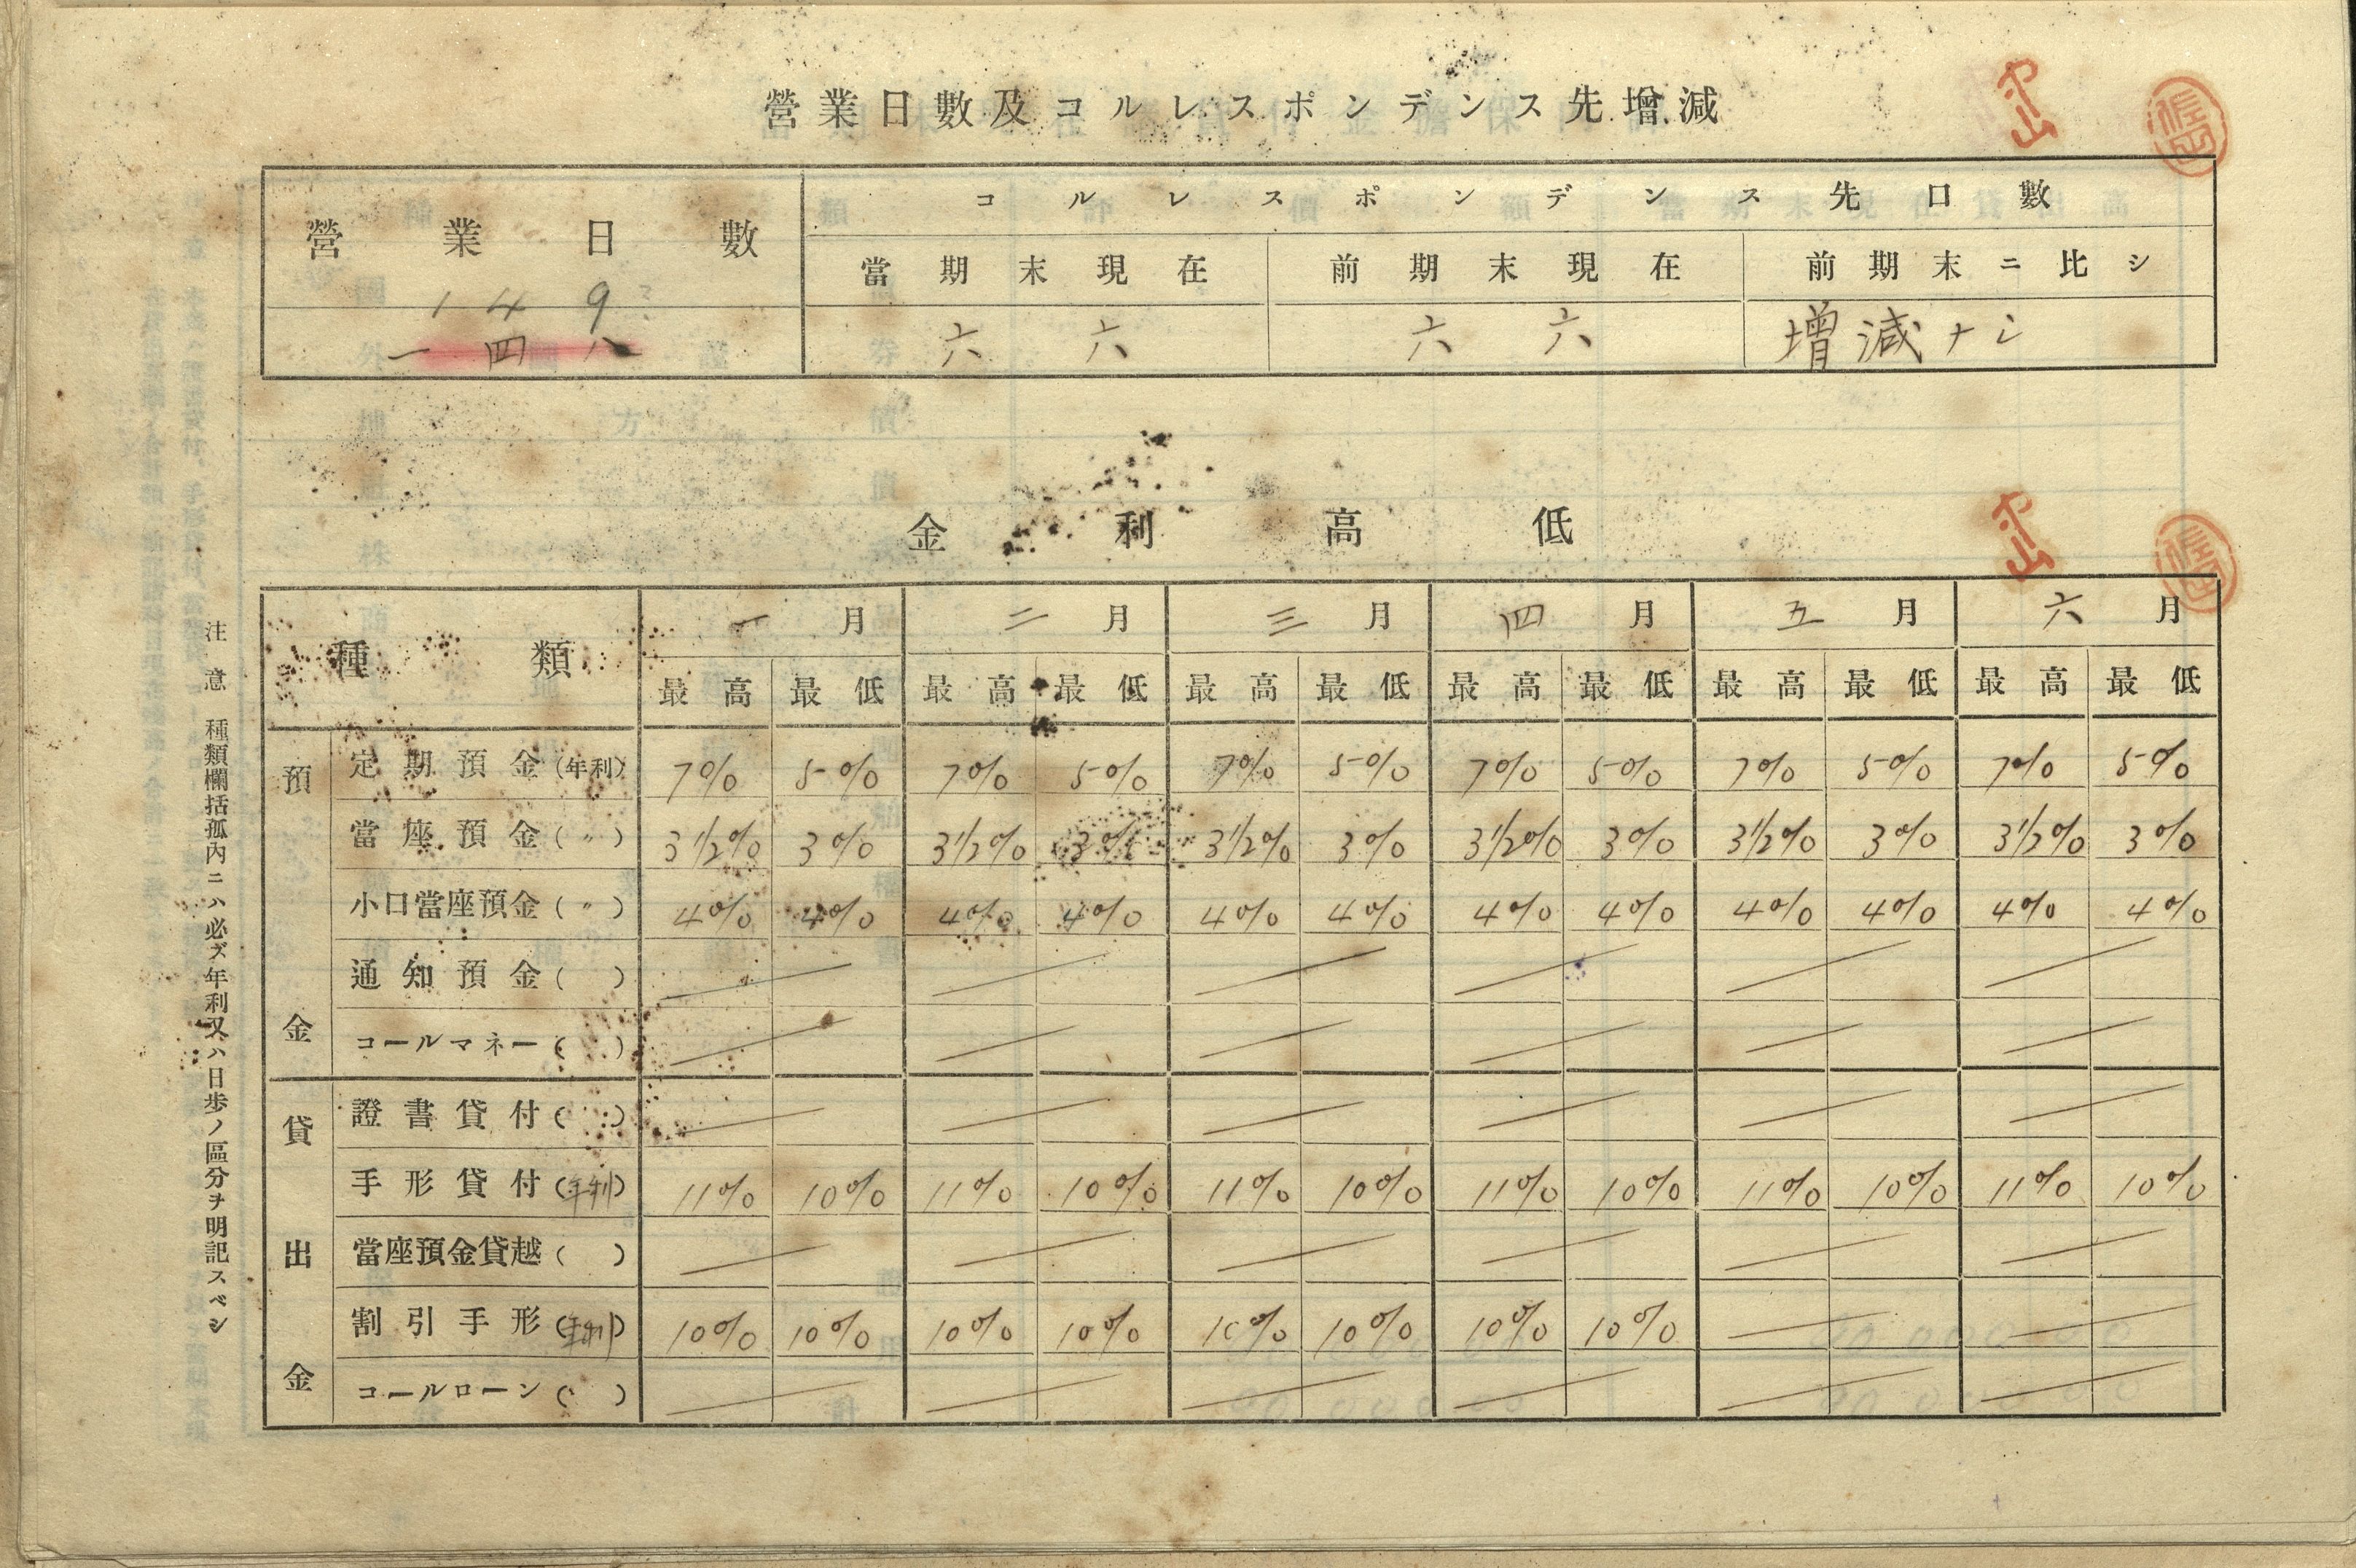 營業日數及コルレスポンデンス先增減
營業日數 コルレスポンデンス先口數
當期末現在 前期末現在 前期末ニ比シ
149
一四八 六六 六六 增減ナシ
金利高低
種類 一月 二月 三月 四月 五月 六月
最高 最低 最高 最低 最高 最低 最高 最低 最高 最低 最高 最低
預金
定期預金(年利) 7% 5% 7% 5% 7% 5% 7% 5% 7% 5% 7% 5%
當座預金(〃) 3 1/2% 3% 3 1/2% 3% 3 1/2% 3% 3 1/2% 3% 3 1/2% 3% 3 1/2% 3%
小口當座預金(〃) 4% 4% 4% 4% 4% 4% 4% 4% 4% 4% 4% 4%
通知預金( )
コールマネー( )
貸出金
證書貸付( )
手形貸付(年利) 11% 10% 11% 10% 11% 10% 11% 10% 11% 10% 11% 10%
當座預金貸越( )
割引手形(年利) 10% 10% 10% 10% 10% 10% 10% 10%
コールローン( )
注意 種類欄括孤內ニハ必ズ年利又ハ日步ノ區分ヲ明記スベシ